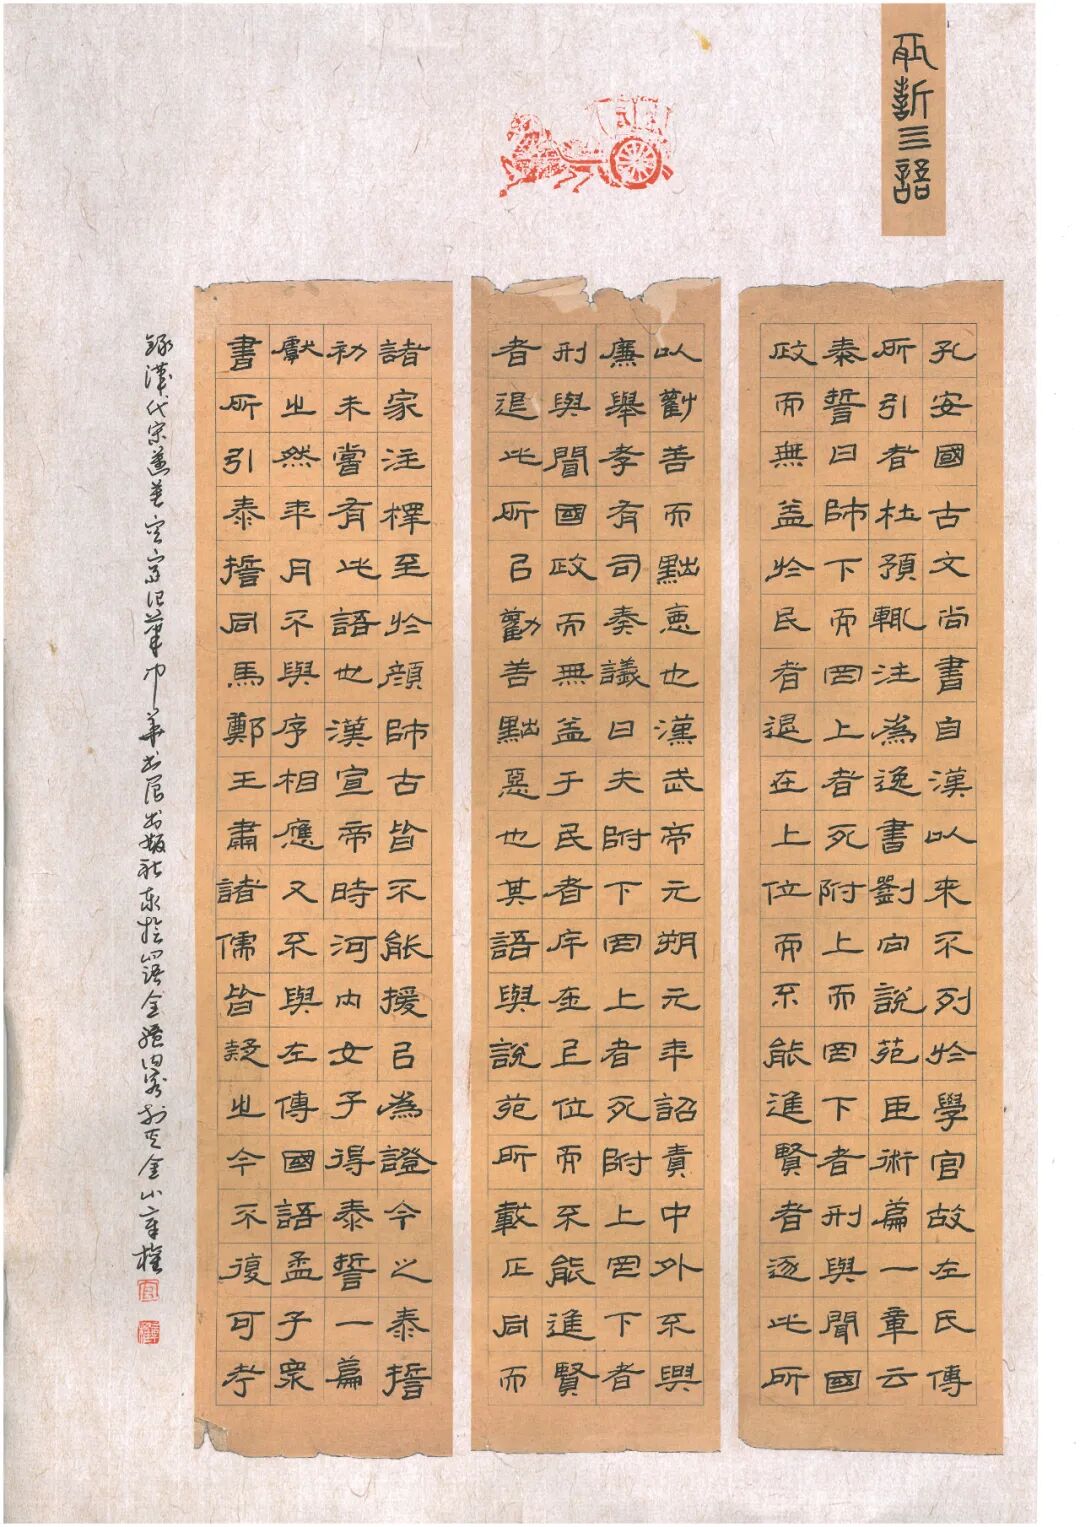 三語
孔安國古文尚書自漢以來不列於學官故左氏傳
所引者杜預輒注為逸書劉向說苑臣術篇一章云
泰誓曰師下而罔上者死附上而罔下者刑與聞國
政而無益於民者退在上位而不能進賢者逐此所
以勸善而黜惡也漢武帝元朔元年詔責中外不興
廉舉孝有司奏議曰夫附下罔上者死附上罔下者
刑與聞國政而無益于民者斥在上位而不能進賢
者退此所以勸善黜惡也其語與說苑所載正同而
諸家注釋至於顏師古皆不能援以為證今之泰誓
初未嘗有此語也漢宣帝時河內女子得泰誓一篇
獻之然年月不與序相應又不與左傳國語孟子眾
書所引泰誓同馬鄭王肅諸儒皆疑之今不復可考